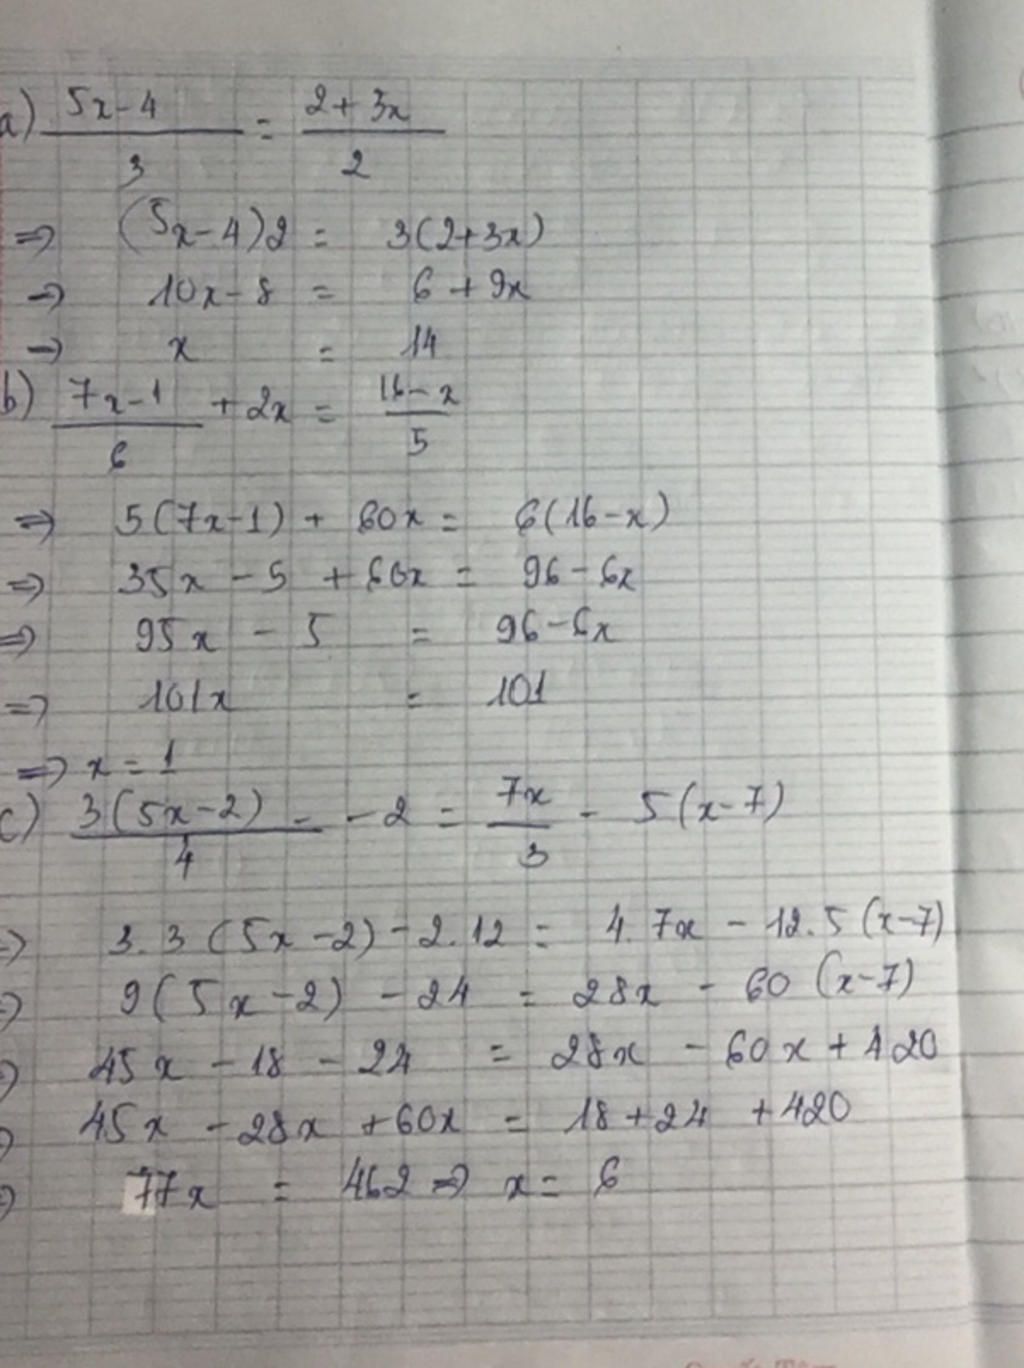 a) (5x-4)/3 = (2+3x)/2
=> (5x-4)2 = 3(2+3x)
=> 10x-8 = 6+9x
=> x = 14
b) (7x-1)/6 + 2x = (16-x)/5
=> 5(7x-1) + 60x = 6(16-x)
=> 35x - 5 + 60x = 96-6x
=> 95x - 5 = 96-6x
=> 101x = 101
=> x = 1
c) 3(5x-2)/4 - - 2 = 7x/3 - 5(x-7)
=> 3.3(5x-2) - 2.12 = 4.7x - 12.5(x-7)
=> 9(5x-2) - 24 = 28x - 60(x-7)
=> 45x - 18 - 24 = 28x - 60x + 420
=> 45x - 28x + 60x = 18+24 +420
=> 77x = 462 => x = 6